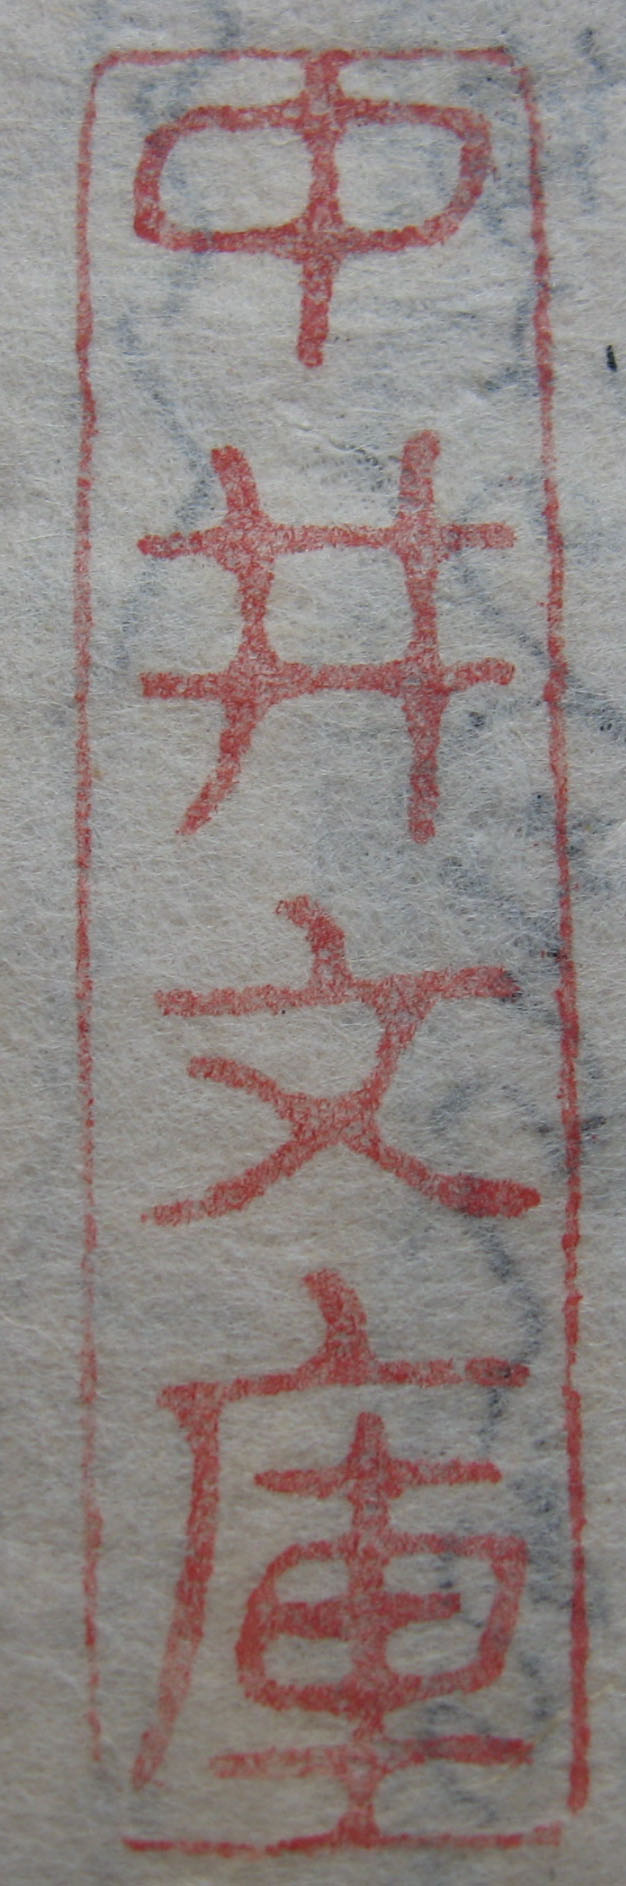 中井文庫